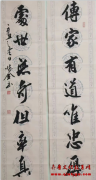 傳家有道唯忠厚
處世無奇但率真